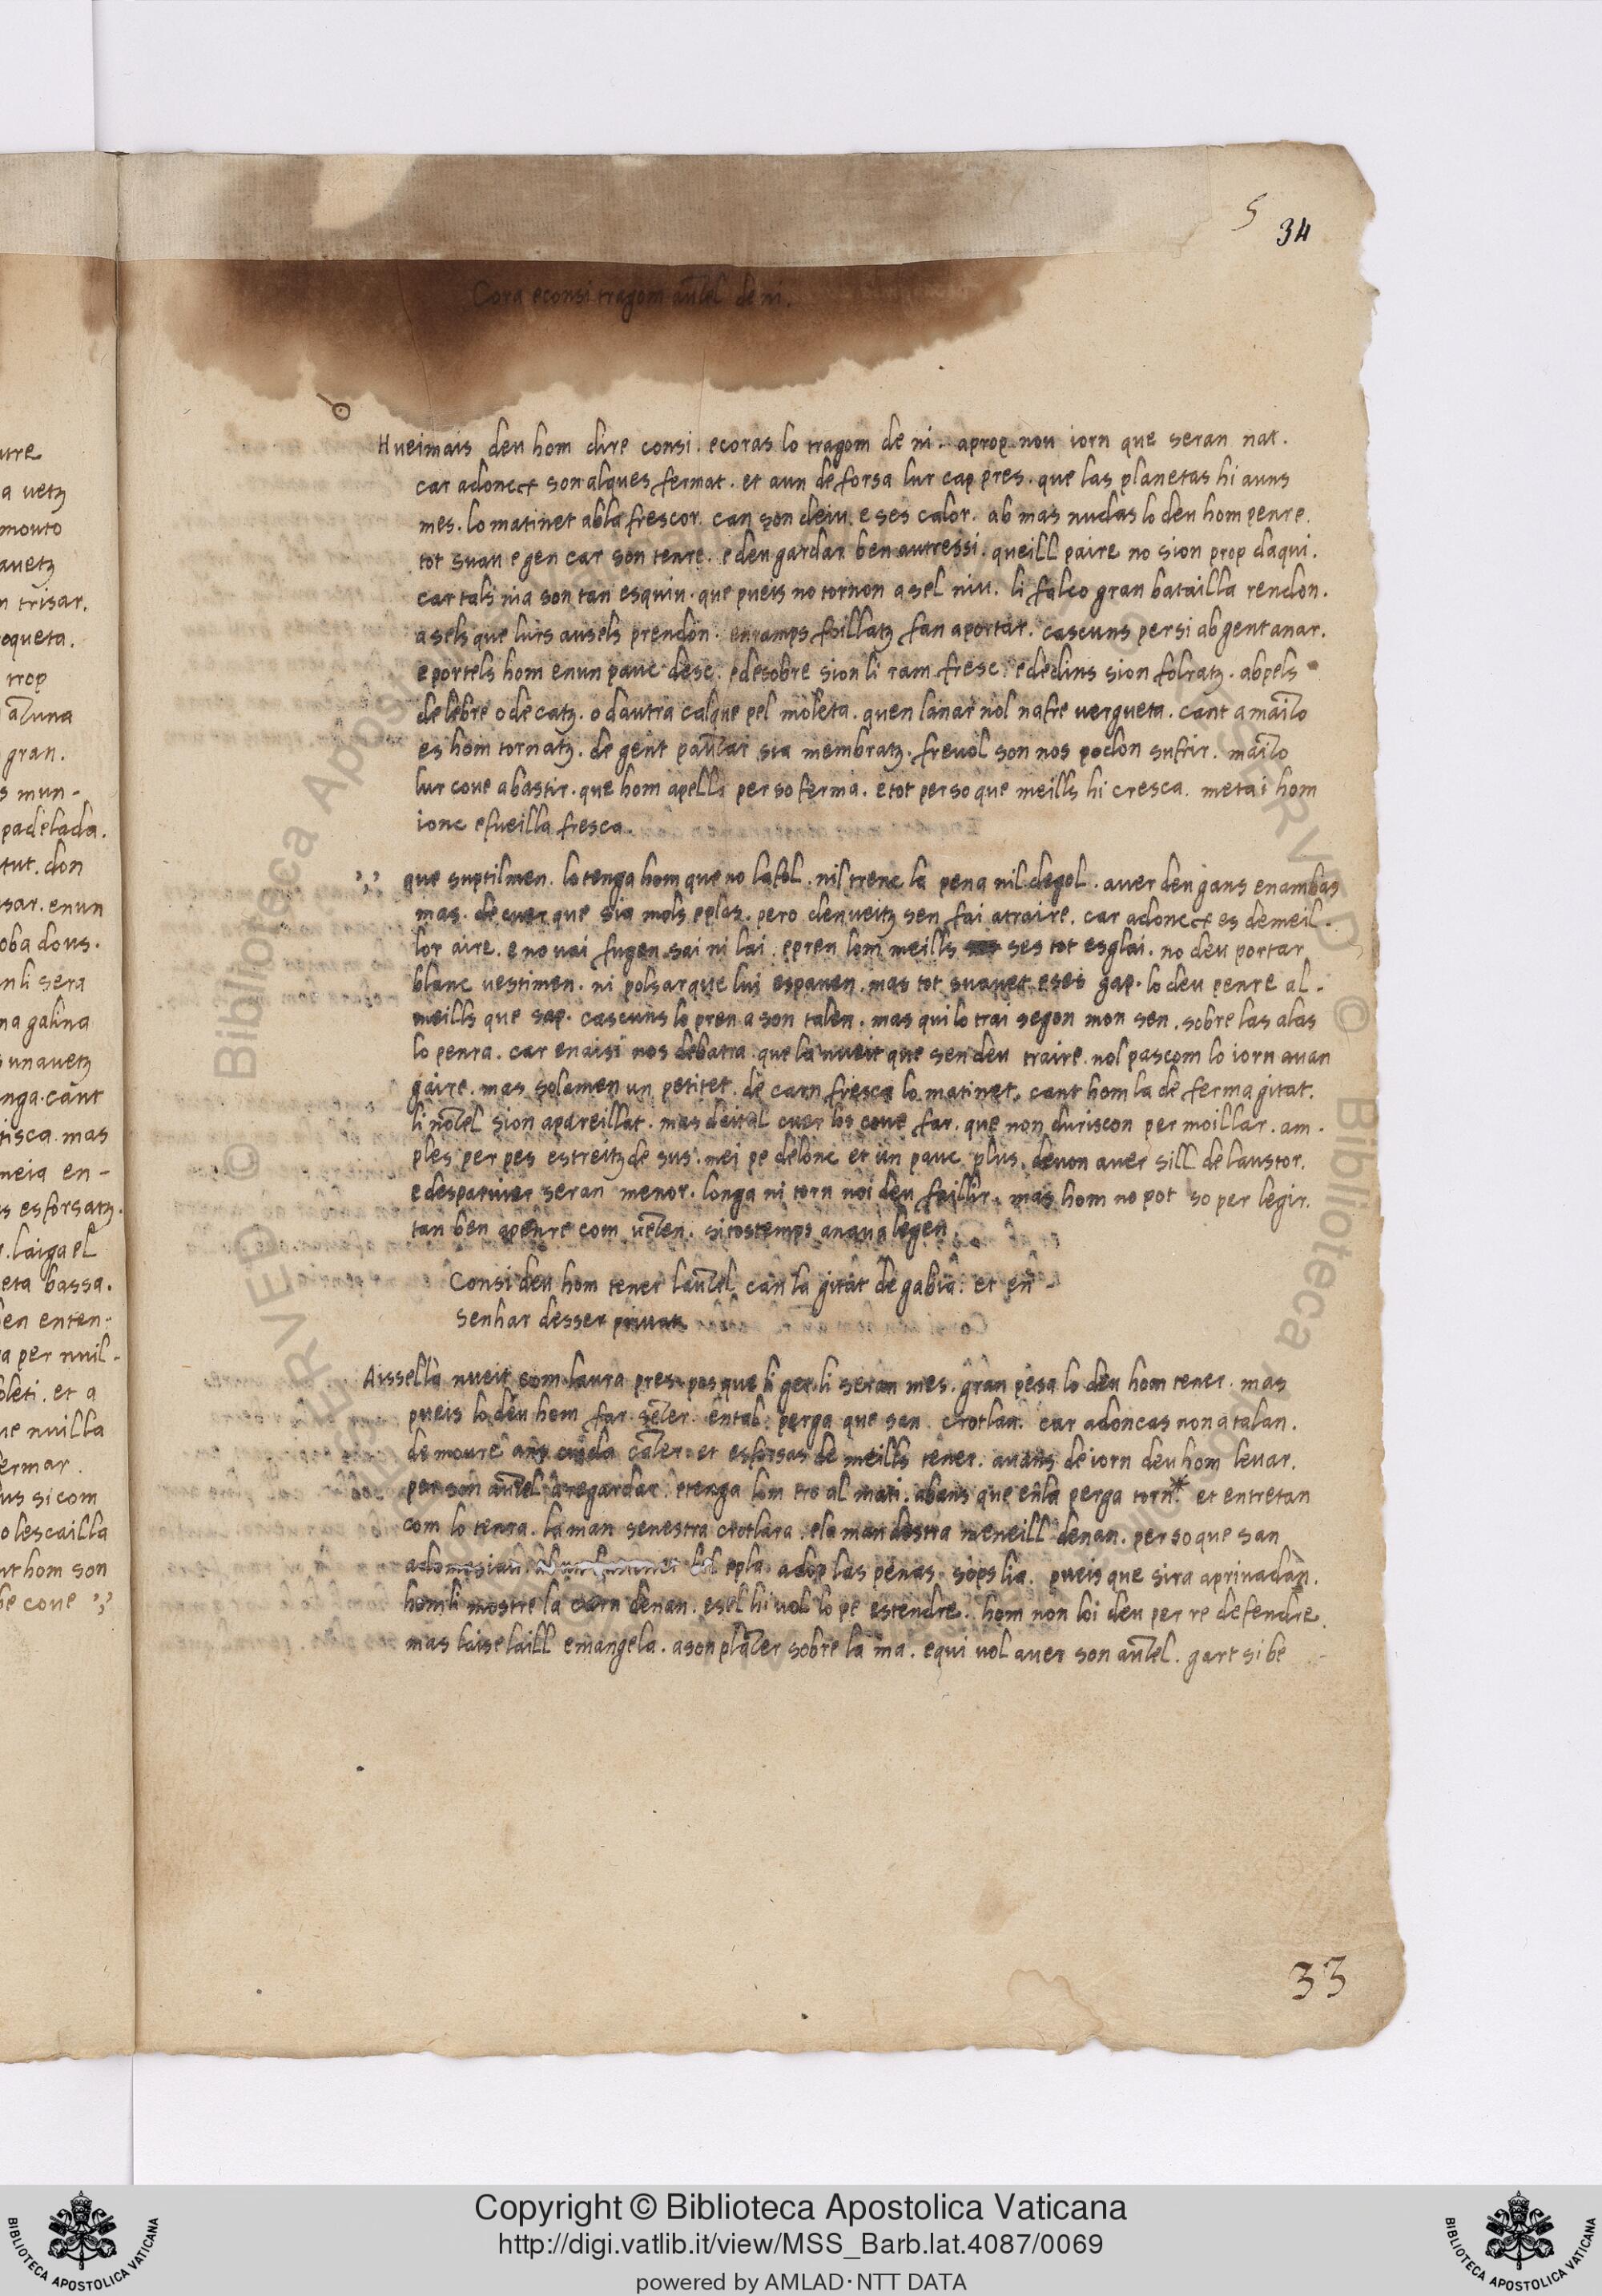 5
34
Cora econsi tragom ausel de ni.
Hueimais deu hom dire consi. ecoras lo tragom de ni. aprop nou iorn que seran nat.
car adoncx son alques fermat. et aun de forsa lur cap pres. que las planetas hi auns
mes. lo matinet abla frescor. can son deiu. e ses calor. ab mas nudas lo deu hom penre.
tot suau e gen car son tenre. e deu gardar ben autressi. queill paire no sion prop daqui.
car tals nia son tan esquiu. que pueis no tornon a sel niu. li falco gran batailla rendon.
asels que lurs ausels prendon. enramps foillatz fan aportar. cascuns persi ab gent anar.
e portels hom enun pauc desc. edesobre sion li ram fresc. ededins sion folratz. abpels
de lebre o de catz. o dautra calque pel moleta. quen lanar nol nafre vergueta. cant a maizo
es hom tornatz. de gent pauzar sia membratz. freuol son nos podon sufrir. maizo
lur coue abastir. que hom apella per so ferma. etot perso que meills hi cresca. metai hom
ionc efueilla fresca.
que suptilmen. lo tenga hom que no lafol. nil trenc la pena nil degol. auer deu gans enambas
mas. de cuer que sia mols eplas. pero denueitz sen fai atraire. car adoncx es demeil-
lor aire. e no uai fugen sai ni lai. epren lom meills ses tot esglai. no deu portar
blanc uestimen. ni polsar que lui espauen. mas tot suauet eses gap. lo deu penre al-
meills que sap. cascuns lo pren a son talen. mas qui lo trai segon mon sen. sobre las alas
lo penra. car enaisi nos debatra. que la nueit que sen deu traire. nol pascom lo iorn auan
gaire. mas solamen un petitet. de carn fresca lo matinet. cant hom la de ferma gitat.
li nozel sion apareillat. mas deital cuer los coue far. que non duriscon per moillar. am-
ples per pes estreitz de sus. mei pe delonc et un pauc plus. deuon auer sill de laustor.
e desparuier seran menor. longa ni torn noi deu faillir. mas hom no pot so per legir.
tan ben apenre com uezen. sitostemps anaua legen.
Consi deu hom tener lauzel can la gitat de gabia. et en-
senhar desser priuat.
Aissella nueit com laura pres. pos que li get li seran mes. gran pesa lo deu hom tener. mas
pueis lo deu hom far sezer. ental perga que san crotlan. car adoncas non a talan.
de moure ans cuida cazer. et esforsas de meills tener. auans de iorn deu hom leuar.
per son auzel a regardar. etenga lom tro al mati. abans que enla perga torn.* et entretan
com lo tenra. la man senestra crotlara. ela man destra meneill denan. perso que san
epla adop las penas sops lia. pueis que sira apriuadan.
homli mostre la carn denan. esel hi uol lo pe estendre. hom non loi deu per re defendre.
mas laise laill emangela. ason plazer sobre la ma. equi uol auer son auzel. gart si be
33
utre
a vetz
mouto
auetz
n trisar.
oqueta.
trop
gran.
s mun-
padelada.
tut. don
sar. enun
oba dous.
nli sera
na galina
unauetz
nga. cant
tisca. mas
meia en-
s esforsatz.
laiga el
eta bassa.
en enten-
a per nuil-
oleti. et a
ue nuilla
ermar.
us si com
o lescailla
nt hom son
be coue
Copyright © Biblioteca Apostolica Vaticana
http://digi.vatlib.it/view/MSS_Barb.lat.4087/0069
powered by AMLAD·NTT DATA
BIBLIOTECA APOSTOLICA VATICANA
BIBLIOTECA APOSTOLICA VATICANA